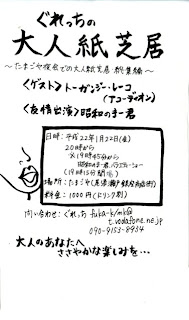 ぐれっちの
大人紙芝居
〜たまごや夜会での大人紙芝居 総集編〜
〈ゲスト〉トーガンジー・レーコ
(アコーディオン)
〈友情出演〉昭和のまー君
日時:平成22年1月22日(金)
20時から
※19時45分から
昭和のまー君、バラエティーショー
(19時15分開場)
場所:たまごや(尾張瀬戸 銀座商店街)
料金:1000円(ドリンク別)
問い合わせ:ぐれっち
t.vodafone.ne.jp
090-9153-8934
大人のあなたへ
ささやかな楽しみを…